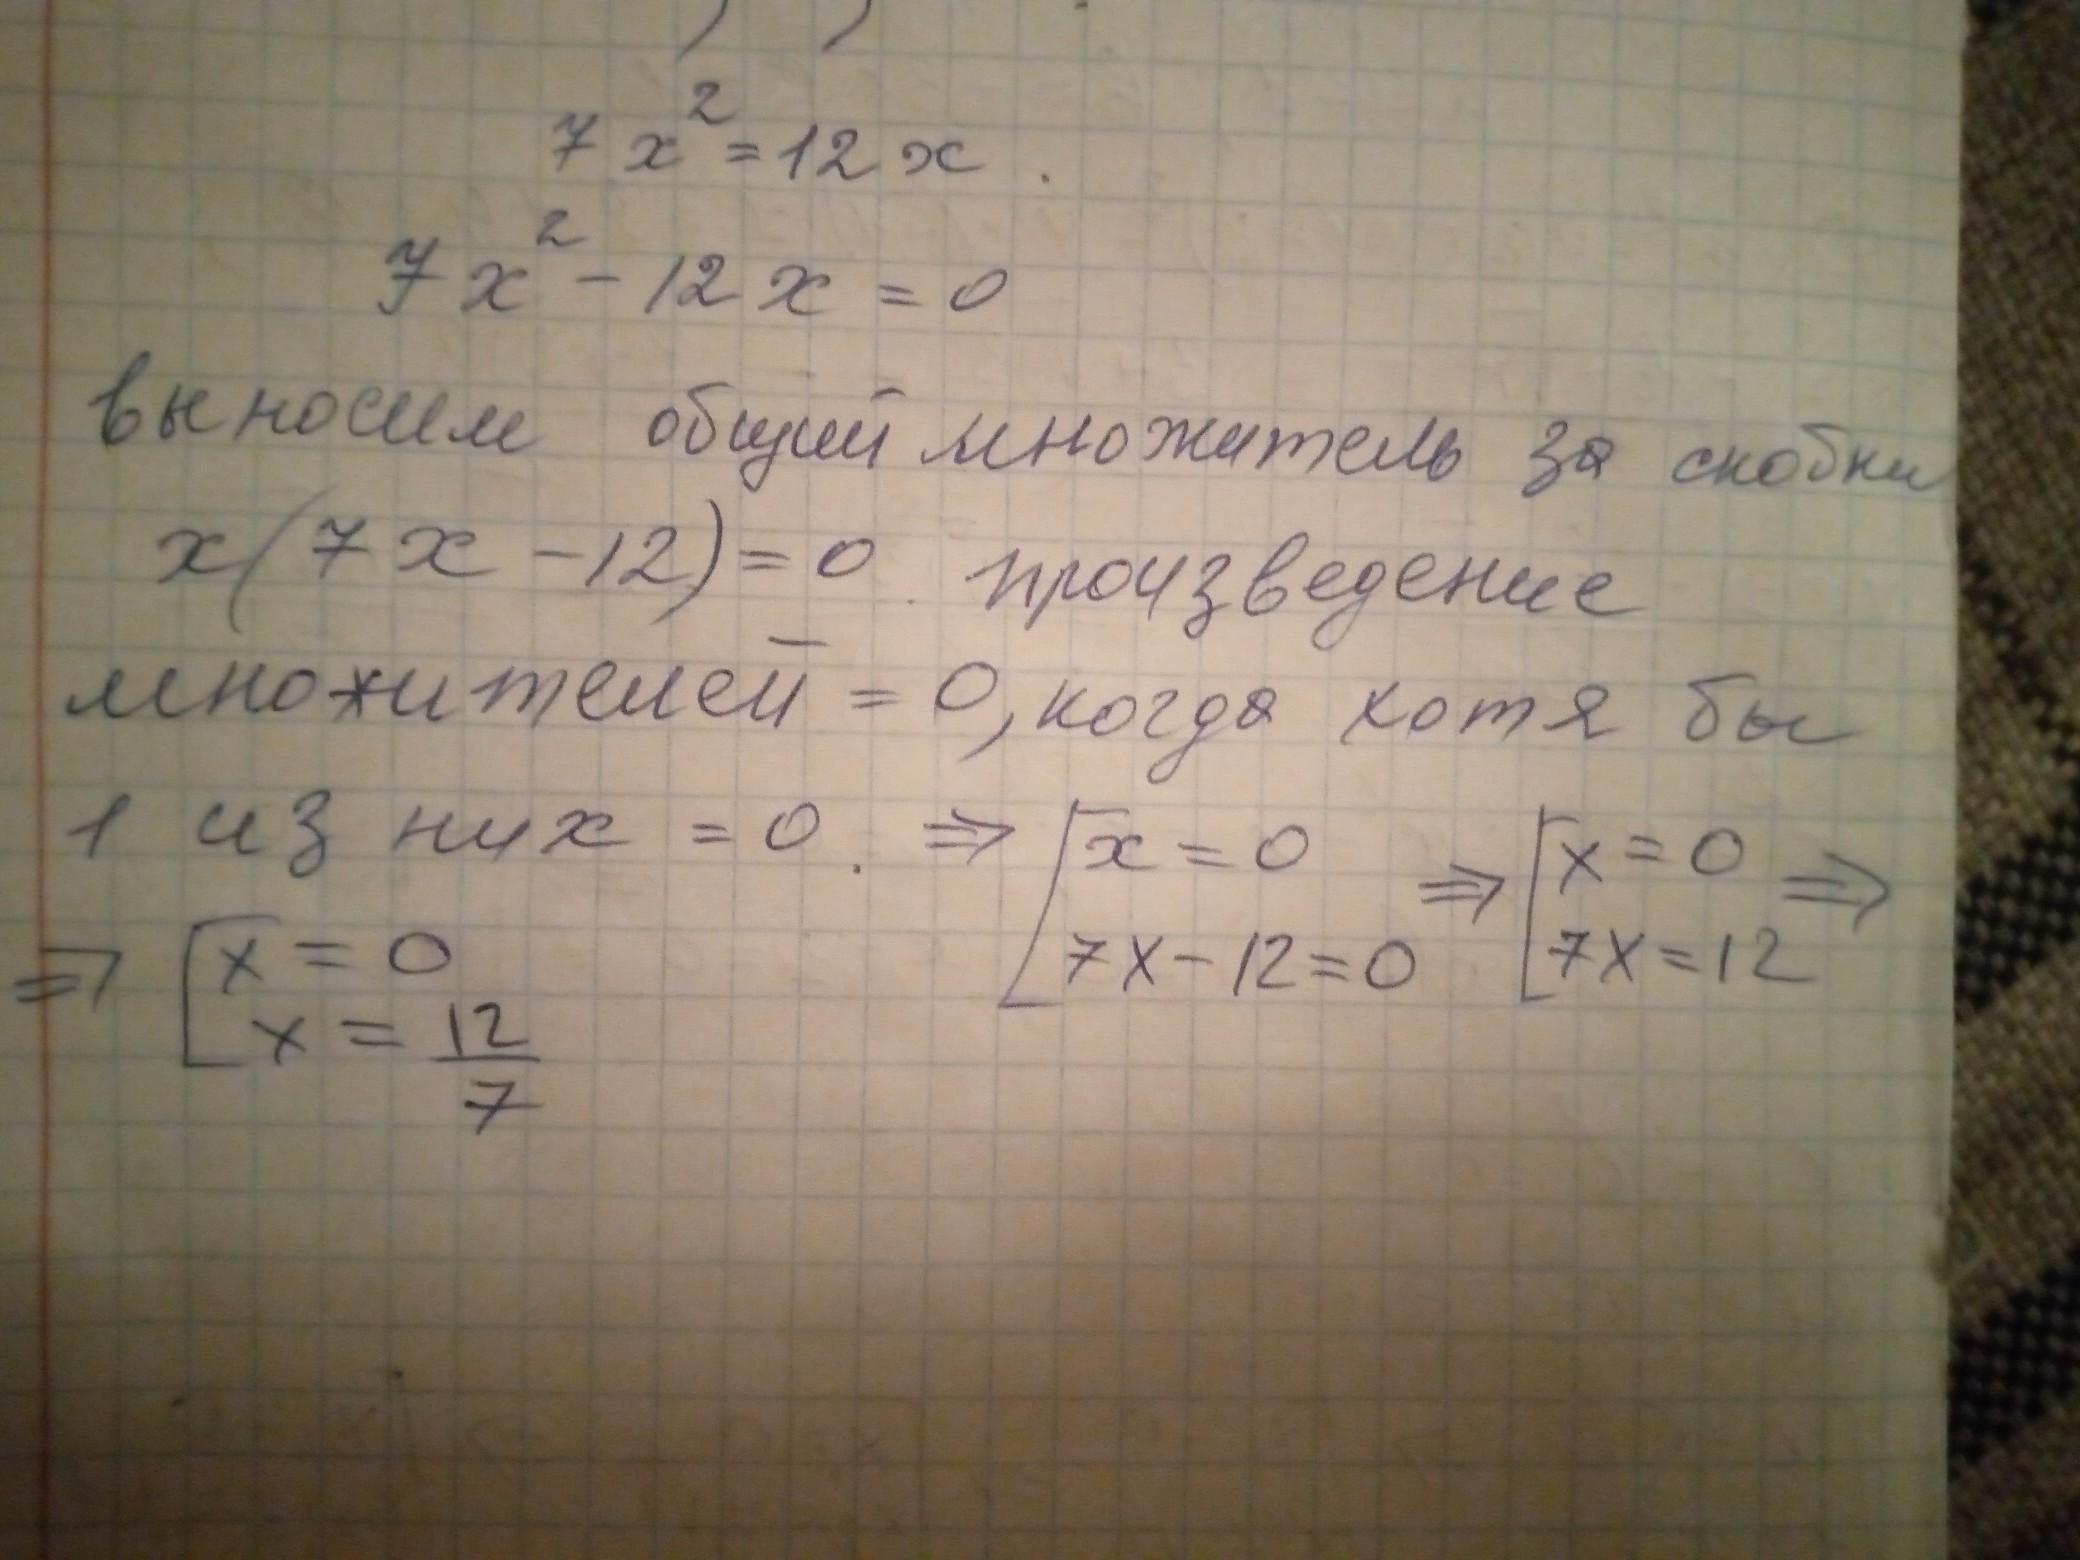 7x² = 12x.
7x² - 12x = 0
выносим общий множитель за скобки
x(7x - 12) = 0. произведение
множителей = 0, когда хотя бы
1 из них = 0. ⇒ [x = 0 ⇒ [x = 0 ⇒
7x - 12 = 0 7x = 12
⇒ [x = 0
x = 12/7